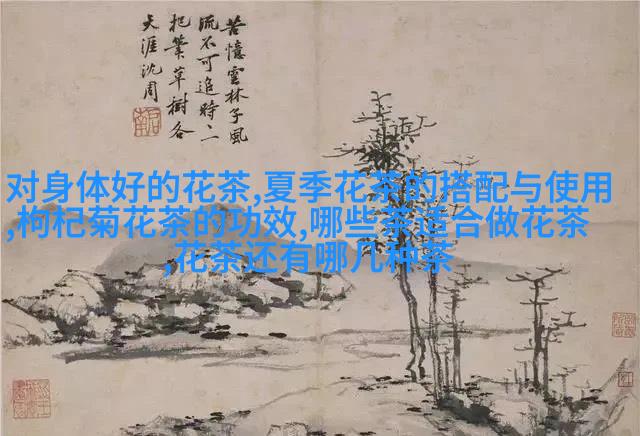 苦憶雲林子風
流不可追時二
把筆草樹各
天涯沈周
对身体好的花茶,夏季花茶的搭配与使用
,枸杞菊花茶的功效,哪些茶适合做花茶
,花茶还有哪几种茶